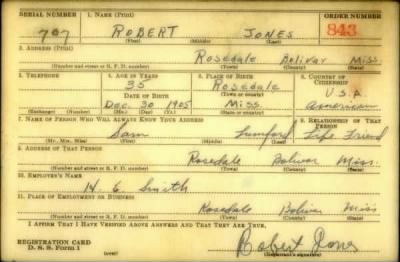 SERIAL NUMBER 1. NAME (Print) ORDER NUMBER
707 ROBERT JONES 843
(First) (Middle) (Last)
2. ADDRESS (Print)
Rosedale Bolivar Miss.
(Number and street or R. F. D. number) (Town) (County) (State)
3. TELEPHONE 4. AGE IN YEARS 5. PLACE OF BIRTH 6. COUNTRY OF CITIZENSHIP
35 Rosedale
DATE OF BIRTH (Town or county) U.S.A
Dec. 30 1905 Miss. American
(Exchange) (Number) (Mo.) (Day) (Yr.) (State or country)
7. NAME OF PERSON WHO WILL ALWAYS KNOW YOUR ADDRESS 8. RELATIONSHIP OF THAT PERSON
Sam Lumford Life Friend
(Mr., Mrs., Miss) (First) (Middle) (Last)
9. ADDRESS OF THAT PERSON
Rosedale Bolivar Miss.
(Number and street or R. F. D. number) (Town) (County) (State)
10. EMPLOYER'S NAME
Smith
11. PLACE OF EMPLOYMENT OR BUSINESS
Rosedale Bolivar Miss
(Number and street or R. F. D. number) (Town) (County) (State)
I AFFIRM THAT I HAVE VERIFIED ABOVE ANSWERS AND THAT THEY ARE TRUE.
REGISTRATION CARD
D. S. S. Form 1 (over) Robert Jones
(Registrant's signature)